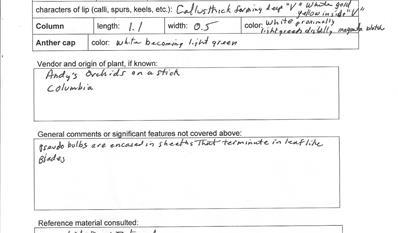 characters of lip (calli, spurs, keels, etc.): Callus thick forming deep "V" White gold
yellow inside "V"
Column length: 1.1 width: 0.5 color: white proximally
light green distally magenta
Anther cap color: white becoming light green
Vendor and origin of plant, if known:
Andy's Orchids on a stick
Columbia
General comments or significant features not covered above:
Pseudo bulbs are encased in sheaths that terminate in leaflike
Blades
Reference material consulted: